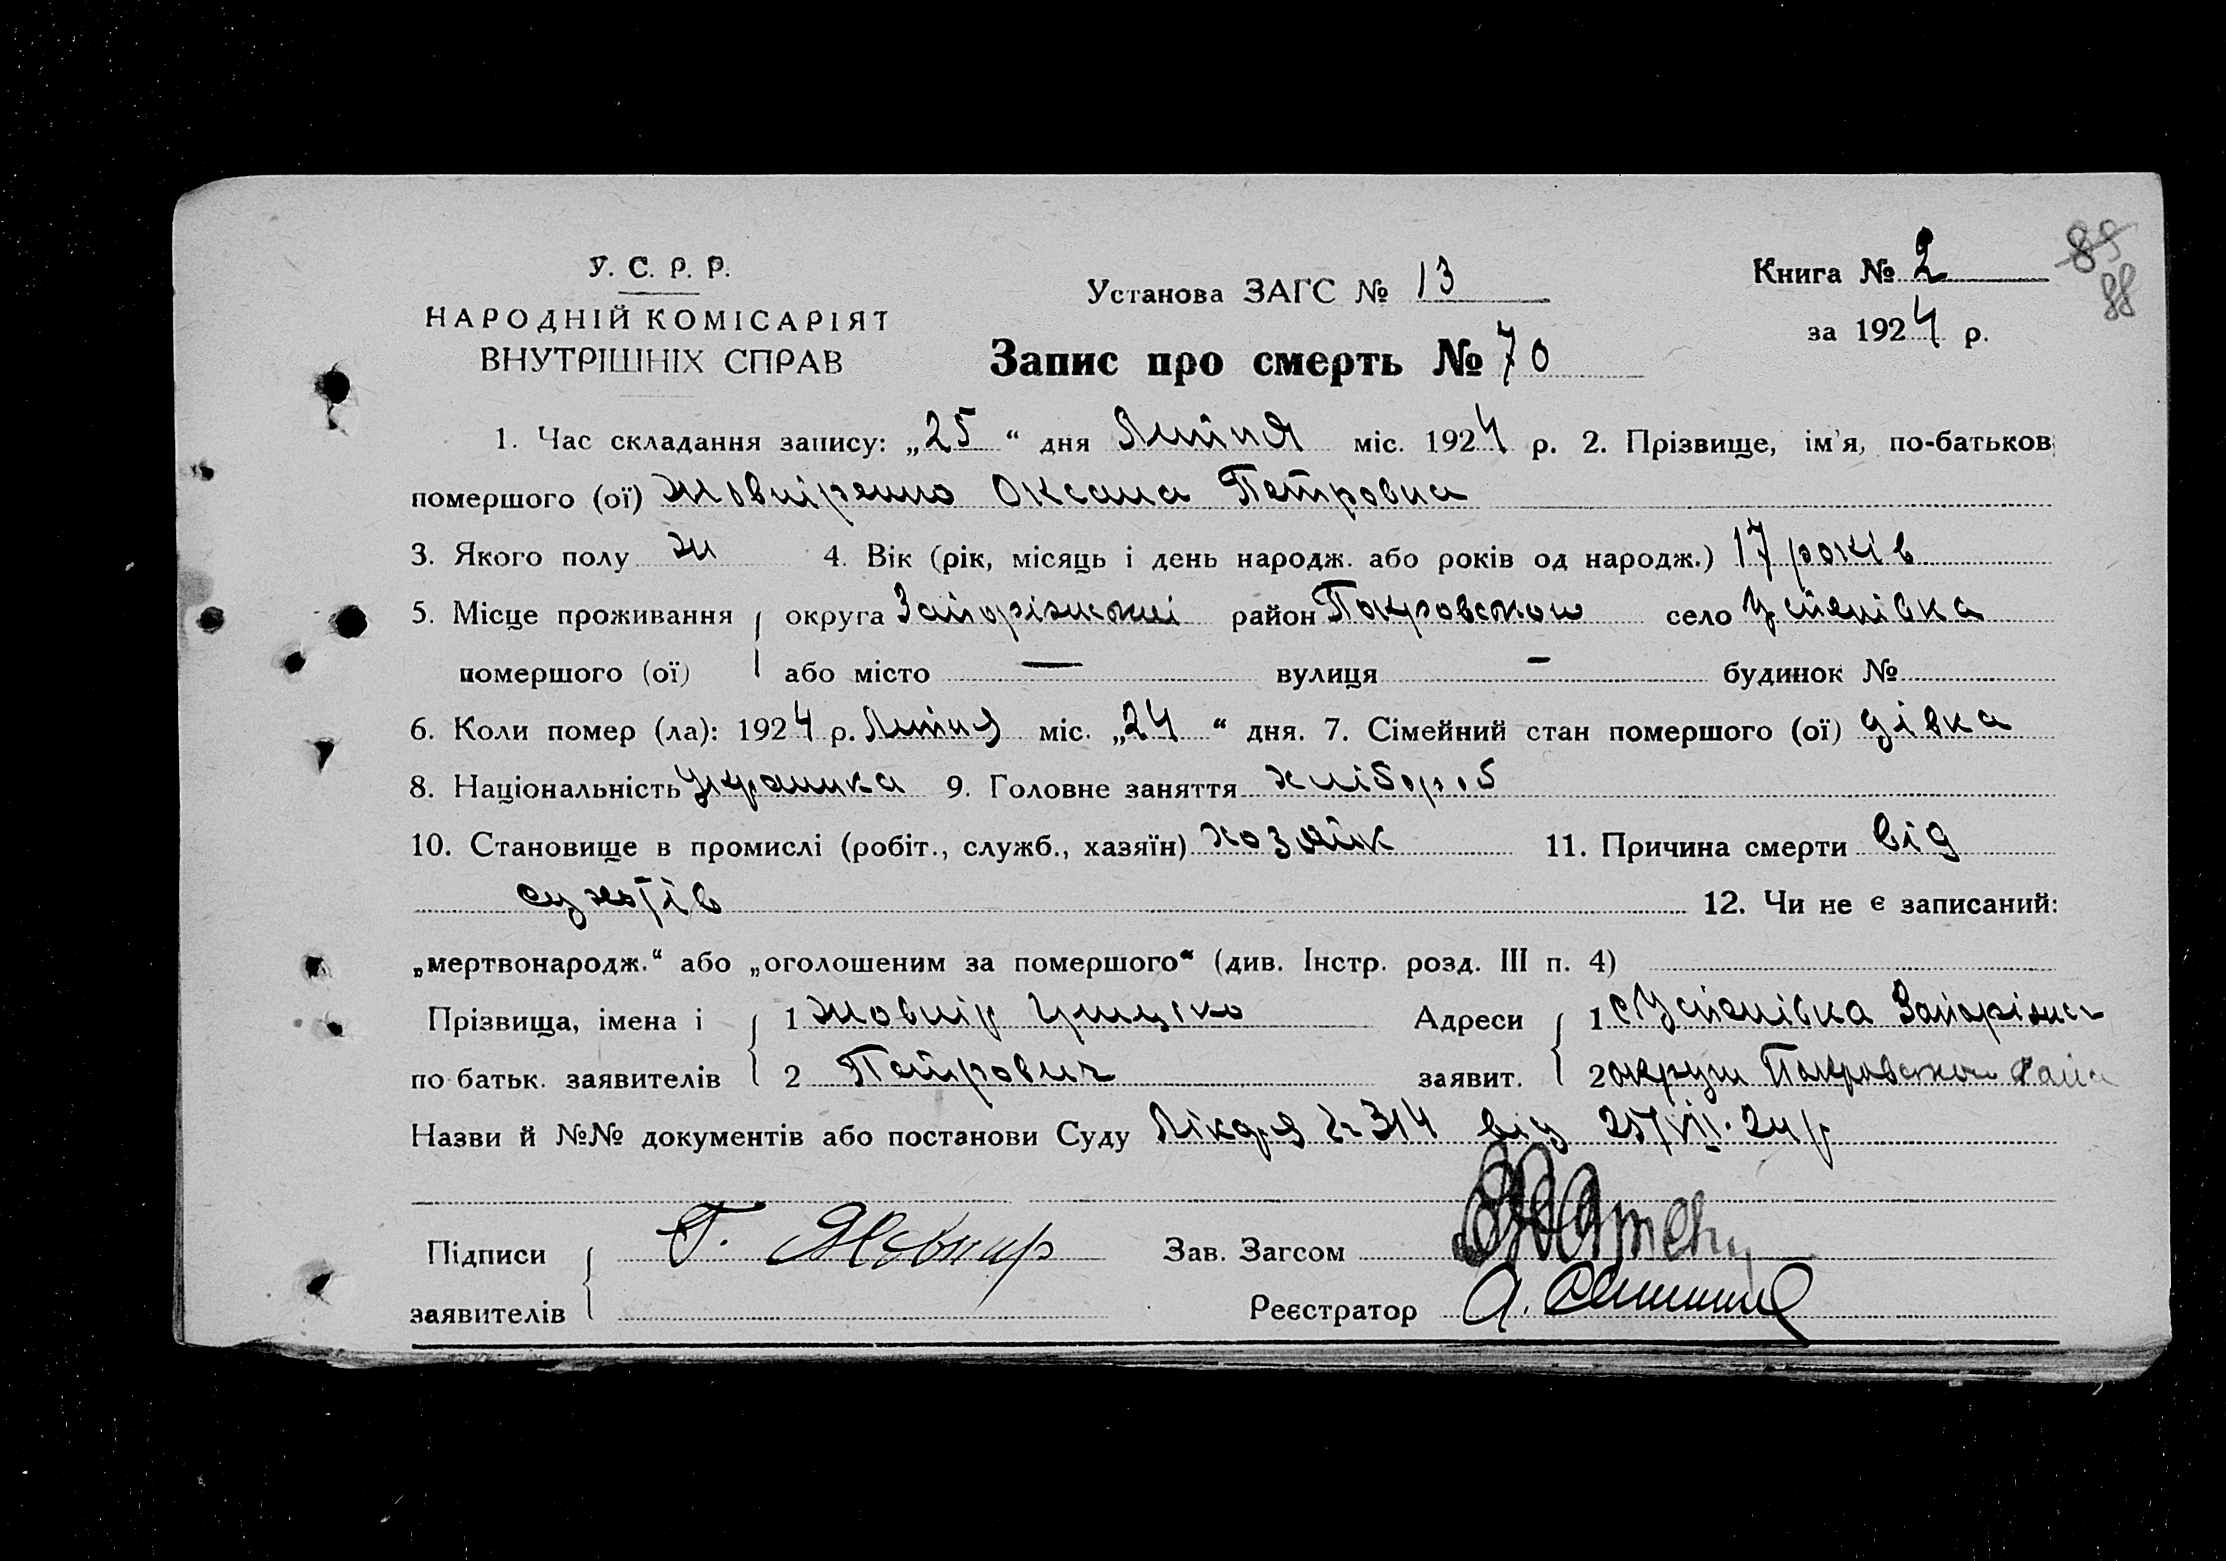 У. С. Р. Р.
НАРОДНІЙ КОМІСАРІЯТ
ВНУТРІШНІХ СПРАВ
Установа ЗАГС № 13
Книга № 2
за 1924 р.
89
88
Запис про смерть № 70
1. Час складання запису: „25“ дня Липня міс. 1924 р. 2. Прізвище, ім'я, по-батьков
помершого (ої) Оксана Петровна
3. Якого полу ж 4. Вік (рік, місяць і день народж. або років од народж.) 17 років
5. Місце проживання округа район Покровського село Успенівка
помершого (ої) або місто — вулиця — будинок №
6. Коли помер (ла): 1924 р. Липня міс. „24“ дня. 7. Сімейний стан помершого (ої) дівка
8. Національність Українка 9. Головне заняття хлібороб
10. Становище в промислі (робіт., служб., хазяїн) 11. Причина смерти від
сухотів 12. Чи не є записаний:
„мертвонародж.“ або „оголошеним за помершого“ (див. Інстр. розд. III п. 4)
Прізвища, імена і 1 Жовнір Грицько Адреси 1 с Успенівка
по батьк. заявителів 2 Петрович заявит. 2 округи Покровського
Назви й №№ документів або постанови Суду 314 від 25/VII-24 р
Підписи Г. Жовнир Зав. Загсом
заявителів Реєстратор А.